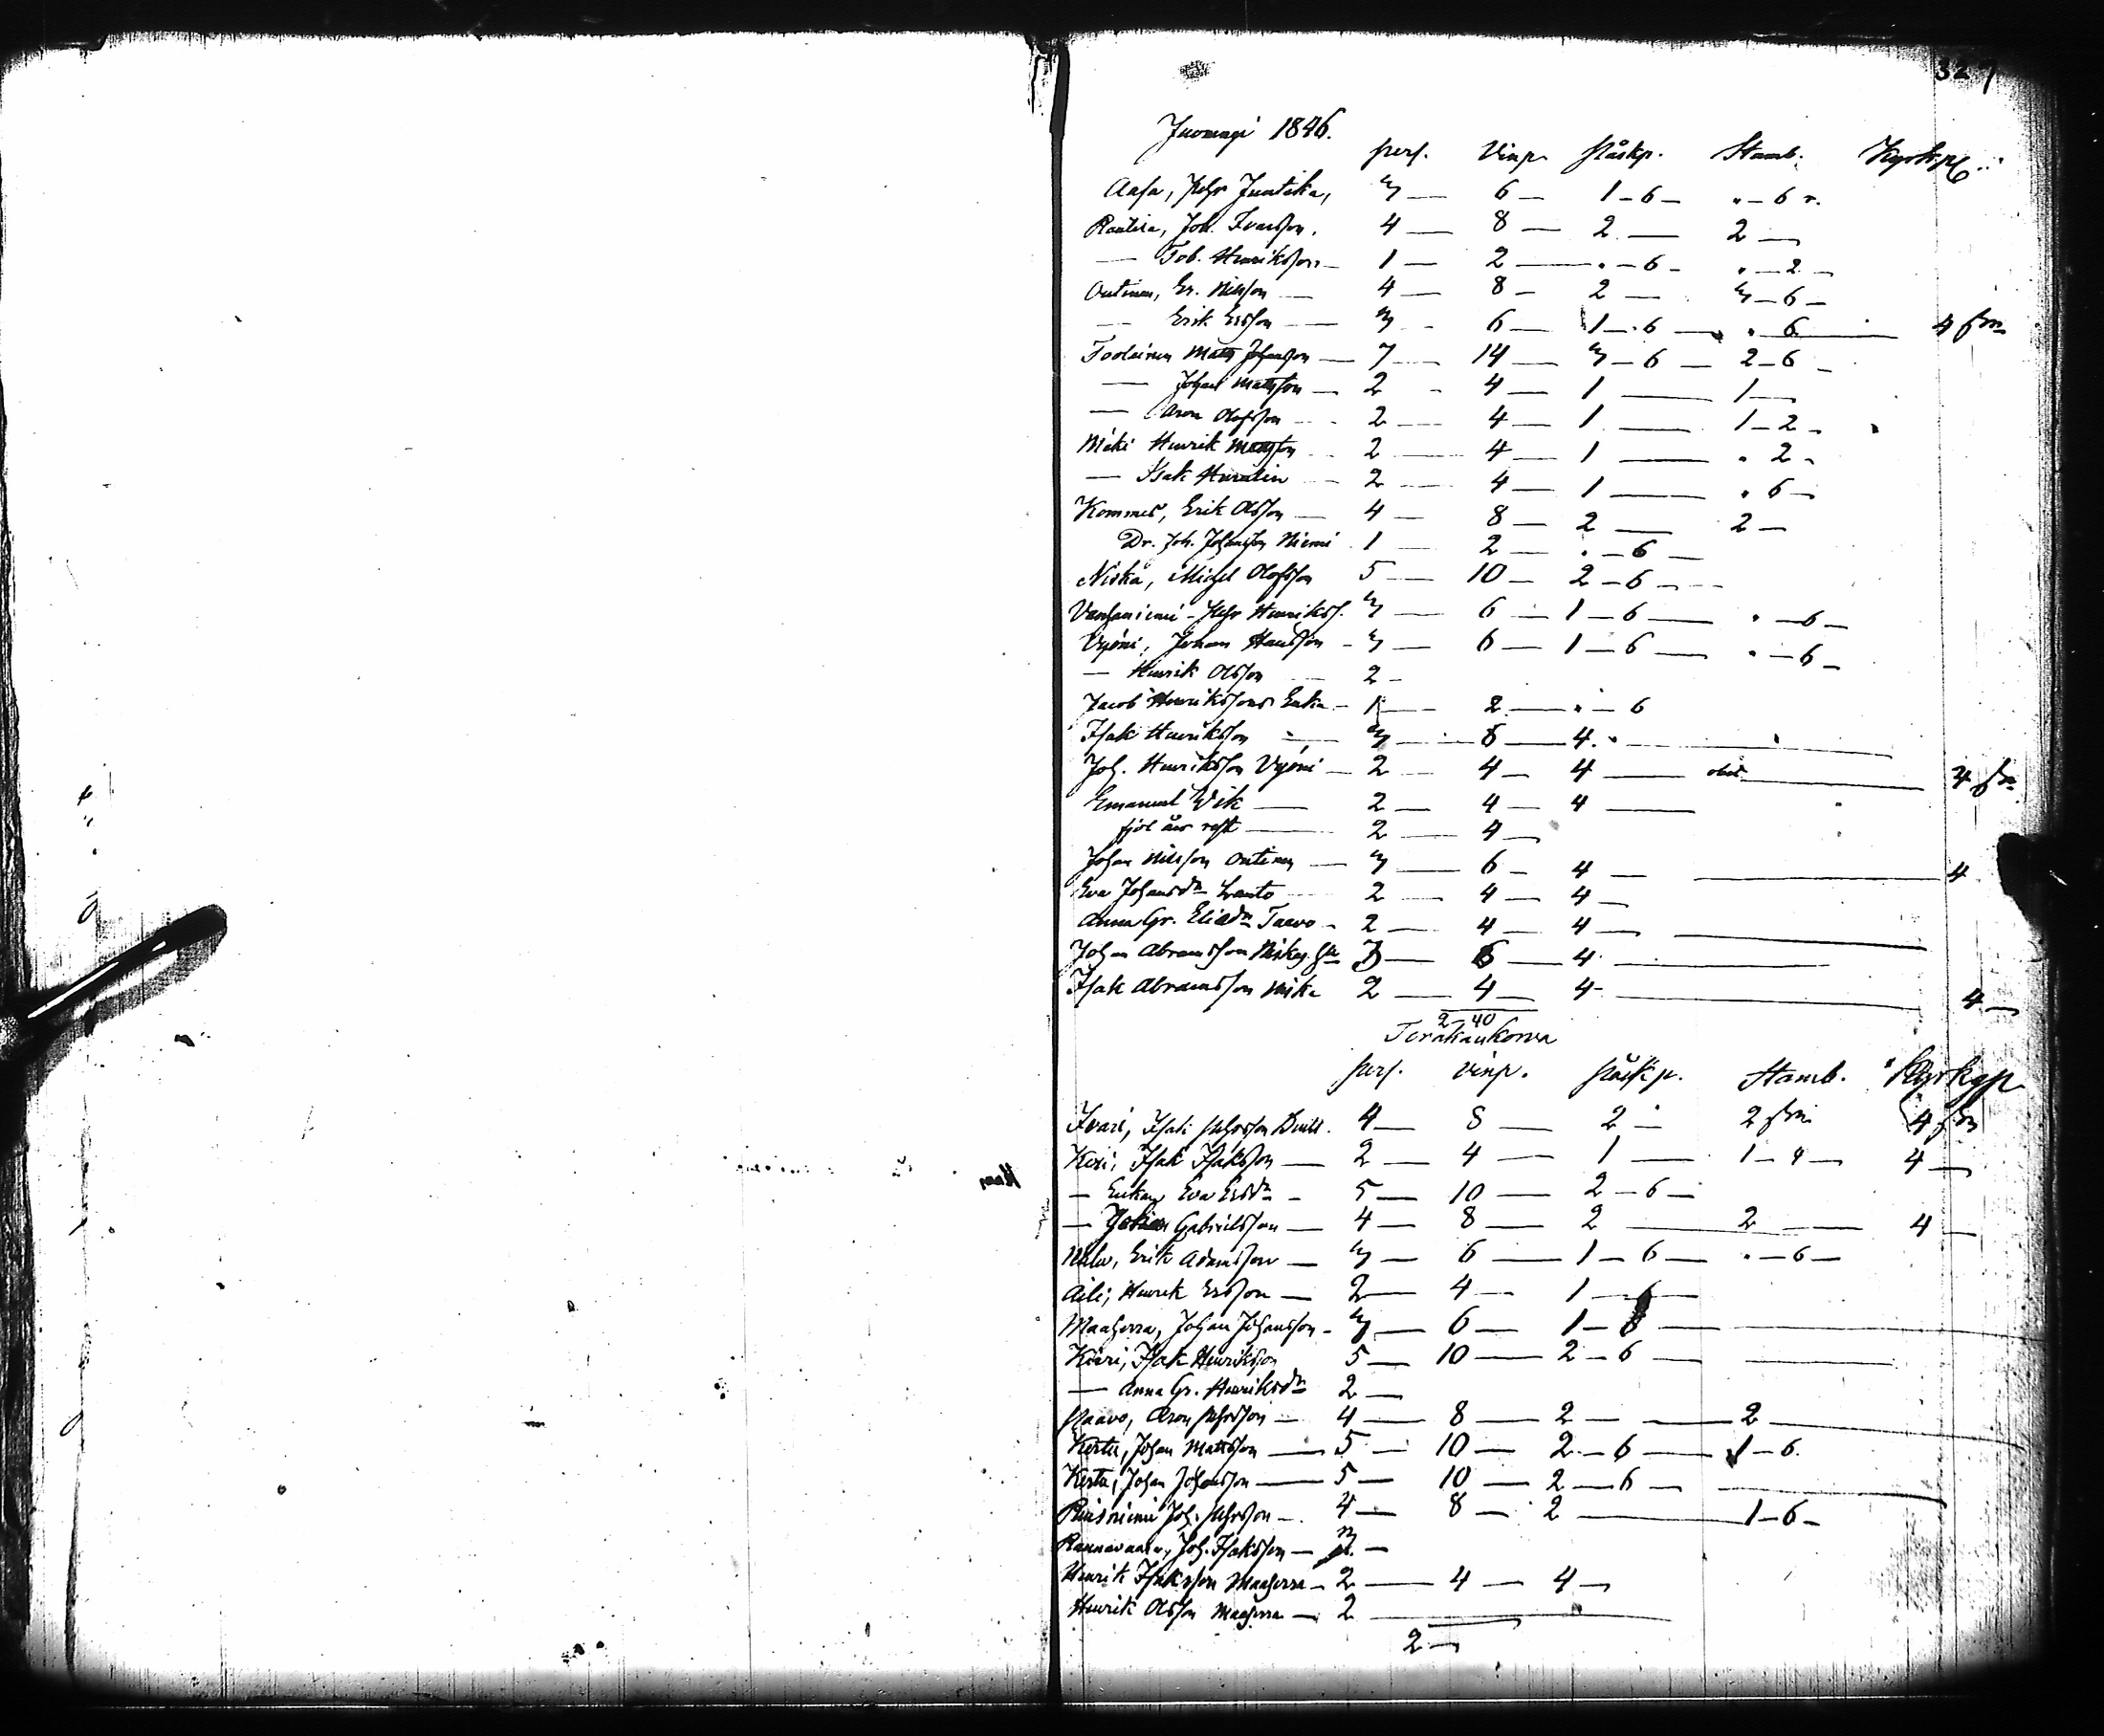 327
Juoxengi 1846.
pers. Vinp. Påskp. Stamb. Kyrkp.
Aafa, Pehr Juntika, 3 — 6 — 1 - 6 — " - 6 r.
Rautira, Joh. Ivarsson. 4 — 8 — 2 — 2 —
— Tob. Henriksson — 1 — 2 — " - 6 - " - 2 -
Outinen, Er. Nilsson — 4 — 8 — 2 — 3 - 6 —
— Erik Ersson — 3 - 6 — 1 - 6 — " 6 — 4
Toolainen Matts Johansson — 7 — 14 — 3 - 6 — 2 - 6 -
— Johan Mattsson — 2 - 4 — 1 — 1 —
— Aron Olofsson — 2 — 4 — 1 — 1 - 2 -
Mäki Henrik Mattsson — 2 — 4 — 1 — " 2 -
— Isak Hurulin — 2 — 4 — 1 — " 6 —
Kommes, Erik Olsson — 4 — 8 — 2 — 2 —
Dr. Joh. Johansson Niemi 1 — 2 — " - 6 —
Niska, Michel Olofsson 5 — 10 — 2 - 6 —
Vanhaniemi - Pehr Henrikss. 3 — 6 — 1 - 6 — " - 6 —
Vyöni, Johan Hansson - 3 — 6 — 1 - 6 — " - 6 -
— Henrik Olsson — 2 -
Jacob Henrikssons Enka — 1 — 2 — " - 6
Isak Henriksson — 3 — 6 — 4 "
Joh. Henriksson Vyöni — 2 — 4 — 4 — 4
Emanuel Wik — 2 — 4 — 4 —
fjol års rest — 2 — 4 —
Johan Nilsson Outinen — 3 — 6 - 4 — 4
Eva Johansdr Lanto 2 — 4 — 4 —
Anna Gr. Eliadr Taavo - 2 — 4 — 4 —
Johan Abramsson Niska 3 — 6 — 4 —
Isak Abramsson Niska 2 — 4 — 4 — 4 —
2 - 40
Torakankorva
pers. vinp. Påskp. Stamb. Kyrkop
Ivari, Isak Pehrsson 4 — 8 — 2 — 2 4
Keri, Isak Isaksson — 2 — 4 — 1 — 1 - 4 — 4 —
— Enkan Eva Ersdr - 5 — 10 — 2 - 6 —
— Johan Gabrielsson — 4 — 8 — 2 — 2 — 4 —
Erik Adamsson — 3 — 6 — 1 - 6 — " - 6 —
Aili, Henrik Ersson — 2 — 4 — 1 - 6 —
Maaherra, Johan Johansson - 3 — 6 — 1 - 6 —
Kieri, Isak Henriksson 5 — 10 — 2 - 6 —
— Anna Gr. Henriksdr 2 —
Paavo, Aron Pehrsson — 4 — 8 — 2 — 2 —
Kertu, Johan Mattsson — 5 — 10 — 2 - 6 — 1 - 6.
Kertu, Johan Johansson — 5 — 10 — 2 - 6 —
Joh. Pehrsson — 4 — 8 — 2 — 1 - 6 -
Rannavaara, Joh. Isaksson —
Henrik Isaksson Maaherra - 2 — 4 — 4 —
Henrik Olsson Maaherra — 2 —
2 —